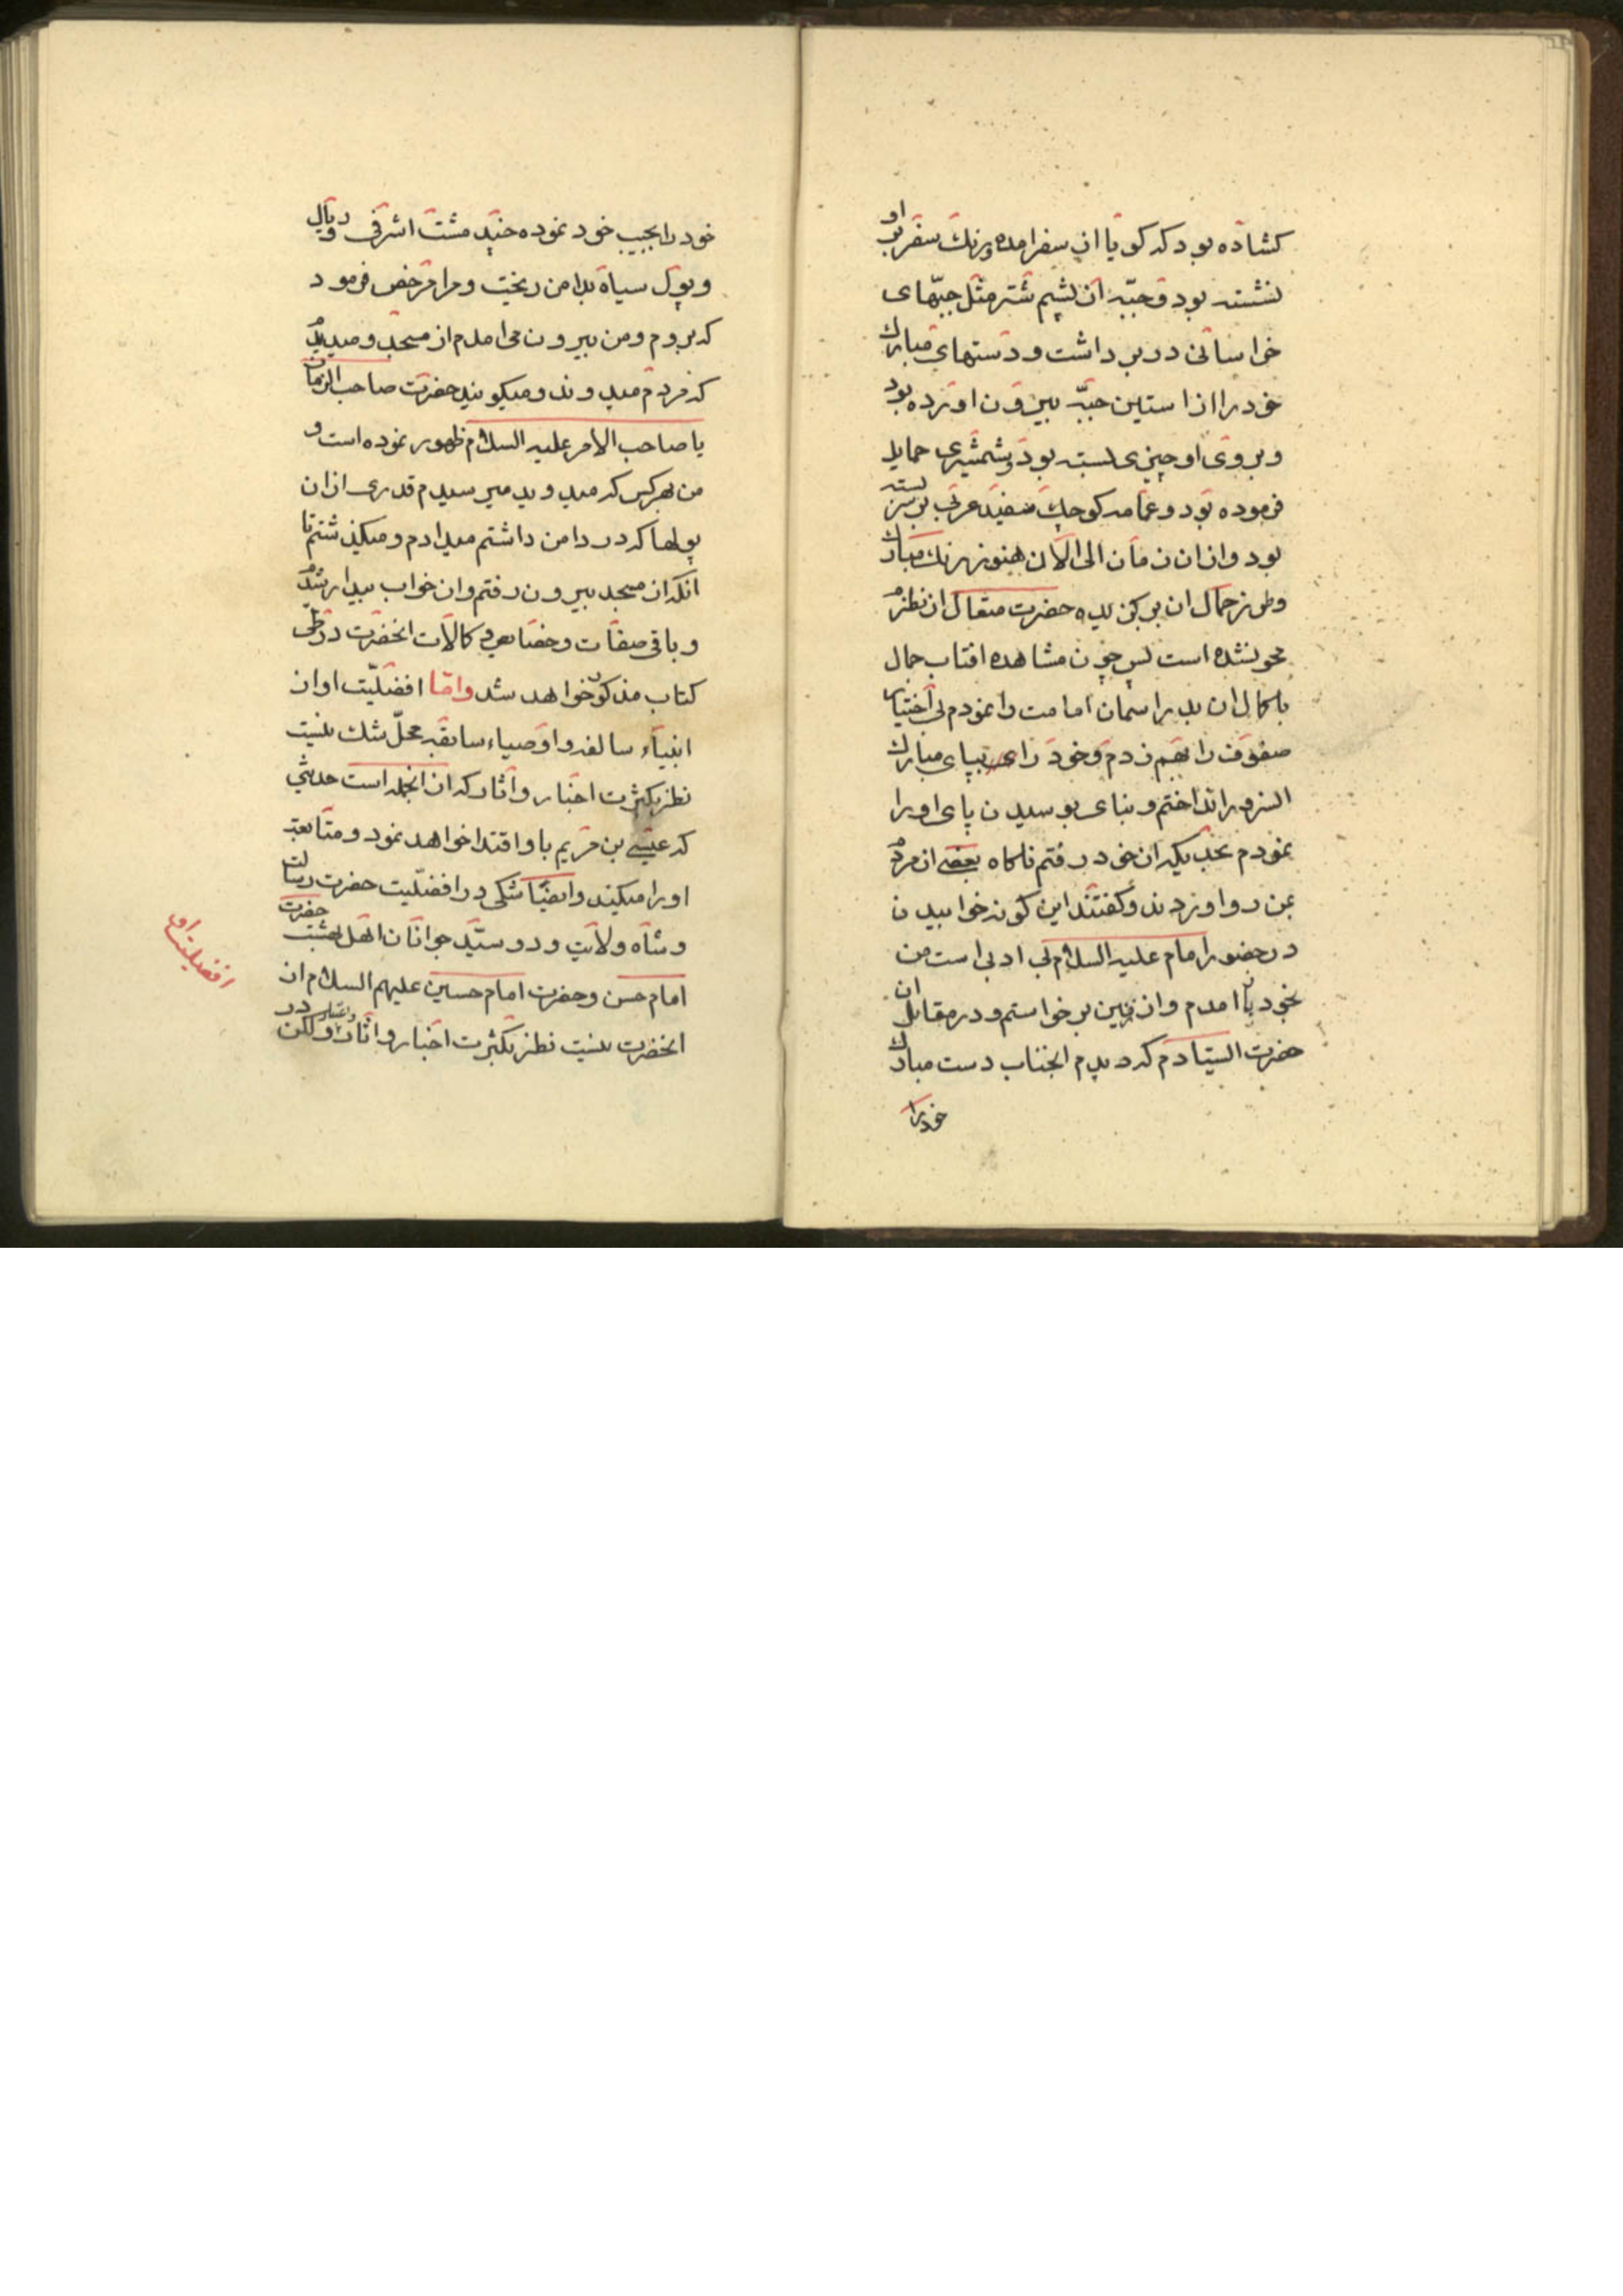 کشاده بود که کویا از سفر امده و رنك سفر بر او
ننشسته بود و جبّه از پشم شتر مثل جبّهای
خراسانی در بر داشت و دستهای مبارك
خود را از استین جبّه بیرون اورده بود
و بر روی او چیزی بسته بود و شمشیری حمایل
فرموده بود و عمامه کوچك سفید عربی بر سر بسته
بود و از ان زمان الی الآن هنوز رنك مبارك
و طرز جمال ان برکزیده حضرت متعال از نظرم
محو نشده است پس چون مشاهده افتاب جمال
با کمال ان بدر اسمان امامت را نمودم بی اختیار
صفوف را بهم زدم و خود را بپای مبارك
السرور انداختم و بنای بوسیدن پای او را
نمودم بحدیکه از خود رفتم ناکاه بعضی از مردم
بمن رو اوردند و کفتند این کونه خوابیدن
در حضور امام علیه السلام بی ادبی است من
بخود باز امدم و از زمین برخواستم و در مقابل ان
حضرت ایستادم که دیدم انجناب دست مبارك
خود را
خود را بجیب خود نموده چند مشت اشرفی و ریال
و پول سیاه بدامن ریخت و مرا مرخص فرمود
که بروم و من بیرون می امدم از مسجد و میدیدم
که مردم میدوند و میکویند حضرت صاحب الزمان
یا صاحب الامر علیه السلام ظهور نموده است و
من بهر کس که میدوید میرسیدم قدری از ان
پولها که در دامن داشتم میدادم و میکذشتم تا
انکه از مسجد بیرون رفتم و از خواب بیدار شدم
و باقی صفات و خصایص و کمالات انحضرت در طی
کتاب مذکور خواهد شد و امّا افضلّیت او از
انبیاء سالفه و اوصیاء سابقه محلّ شك نیست
نظر بکثرت اخبار و اثار که از انجمله است حدیثی
که عیسی بن مریم باو اقتدا خواهد نمود و متابعت
او را میکند و ایضاً شکی در افضلّیت حضرت رسالت
و شاه ولایت و دو سیّد جوانان اهل بهشت حضرت
امام حسن و حضرت امام حسین علیهم السلام از
انحضرت نیست نظر بکثرت اخبار و اثار و لکن در
افضیلت او